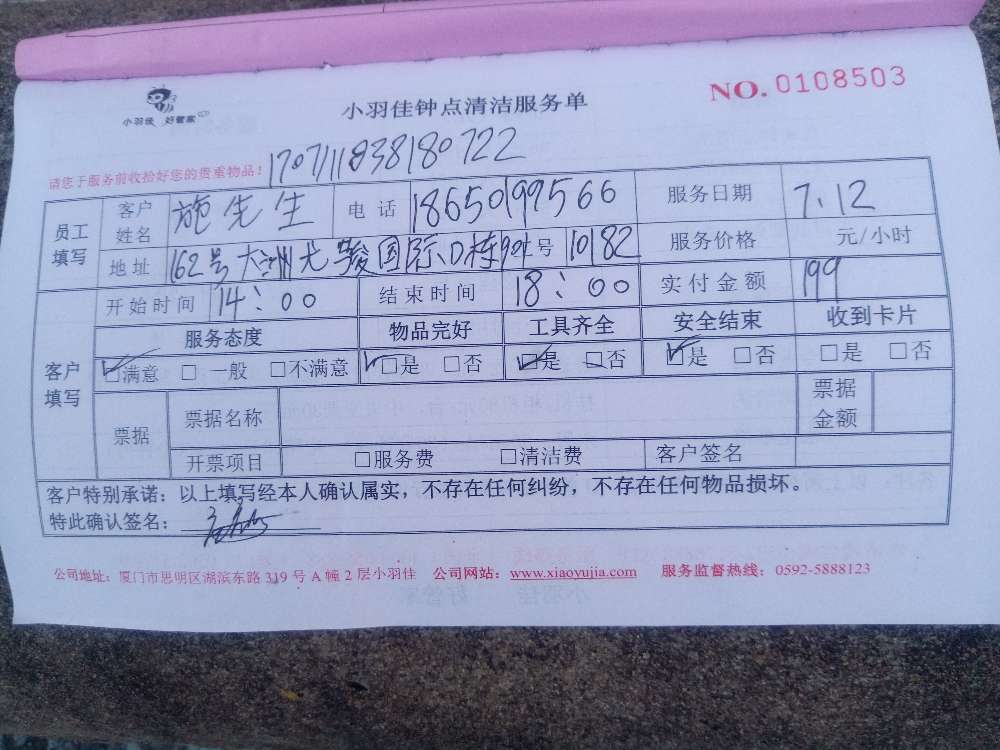 小羽佳 好管家
小羽佳钟点清洁服务单
NO. 0108503
请您于服务前收拾好您的贵重物品! 1707111838180722
员工填写 客户姓名 施先生 电话 18650199566 服务日期 7.12
地址 162号大洲光骏国际D栋 号 10182 服务价格 元/小时
客户填写 开始时间 14:00 结束时间 18:00 实付金额 199
服务态度 物品完好 工具齐全 安全结束 收到卡片
☑满意 □一般 □不满意 ☑是 □否 ☑是 □否 ☑是 □否 □是 □否
票据 票据名称 票据金额
开票项目 □服务费 □清洁费 客户签名
客户特别承诺:以上填写经本人确认属实,不存在任何纠纷,不存在任何物品损坏。
特此确认签名:
公司地址:厦门市思明区湖滨东路 319 号 A 幢 2 层小羽佳 公司网站:www.xiaoyujia.com 服务监督热线:0592-5888123